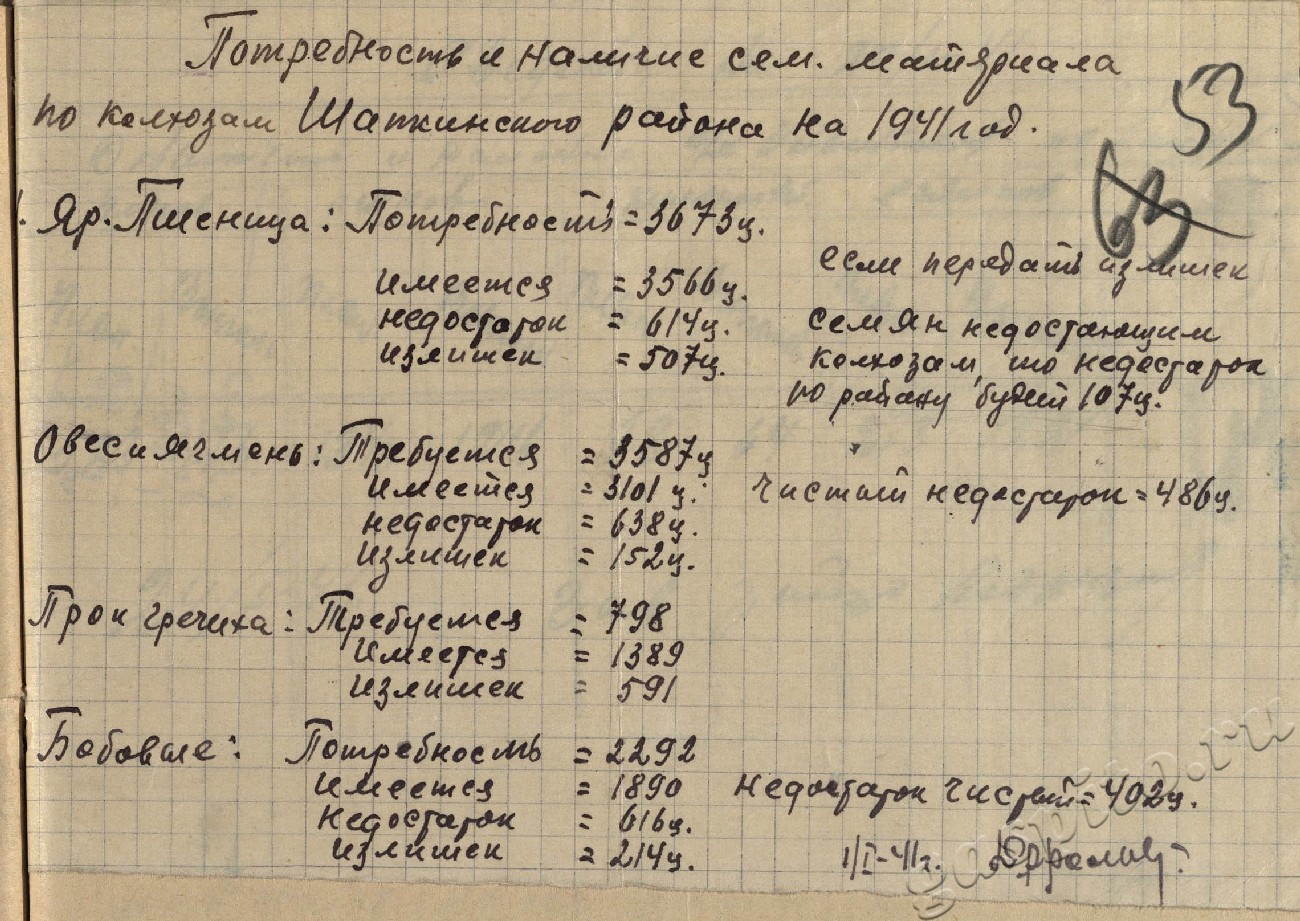 Потребность и наличие сем. материала
53
по колхозам Шапкинского района на 1941 год.
63
1. Яр. Пшеница: Потребность = 3673ц.
имеется = 3566ц.
недостаток = 614ц.
излишек = 507ц.
если передать излишек
семян недостающим
колхозам, то недостаток
по району будет 107ц.
Овес и ячмень: Требуется = 3587ц
имеется = 3101 ц.
недостаток = 638ц.
излишек = 152ц.
Чистый недостаток = 486ц.
Прок гречиха: Требуемся = 798
имеется = 1389
излишек = 591
Бобовые: Потребность = 2292
имеется = 1890
недостаток = 616ц.
излишек = 214ц.
недостаток чистый = 402ц.
1/I-41г.